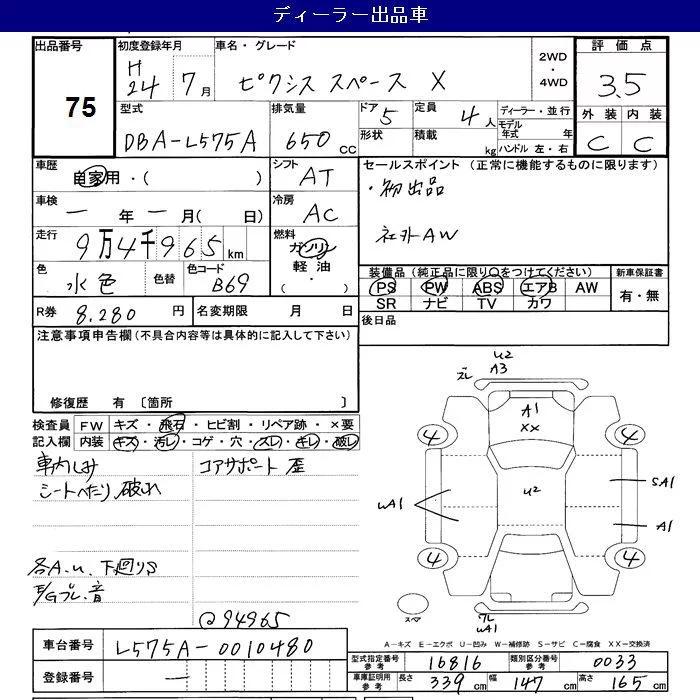 ディーラー出品車
出品番号 75
初度登録年月 H24 7月
車名・グレード ピクシス スペース X
2WD・4WD
評価点 3.5
型式 DBA-L575A
排気量 650 cc
ドア 5
形状
定員 4人
積載 kg
ディーラー・並行
モデル年式 年
ハンドル 左・右
外装 C 内装 C
車歴 自家用・( )
シフト AT
セールスポイント (正常に機能するものに限ります)
・初出品
社外AW
車検 一 年 一 月( 日)
冷房 AC
走行 9万4千965km
燃料 ガソリン 軽油 ( ・ )
色 水色 色替
色コード B69
装備品 (純正品に限り○をつけてください)
PS PW ABS エアB AW
SR ナビ TV カワ
新車保証書 有・無
R券 8.280 円
名変期限 月 日
後日品
注意事項申告欄(不具合内容等は具体的に記入して下さい)
修復歴 有 〔箇所 〕
検査員記入欄
FW キズ・飛石・ヒビ割・リペア跡・×要
内装 キズ・汚レ・コゲ・穴・スレ・キレ・破レ
車内しみ
コアサポート 歪
シートへたり 破れ
各A.u、下廻りS
E/Gブレ、音
94965
u2
ズレ A3
A1
XX
4 4
u2
SA1
uA1
A1
4 4
スペア
ワレ
uA1
A-キズ E-エクボ U-凹み W-補修跡 S-サビ C-腐食 XX-交換済
車台番号 L575A-0010480
登録番号 一
型式指定番号 参考 16816
類別区分番号 参考 0033
車庫証明用 参考 長さ 339 cm 幅 147 cm 高さ 165 cm